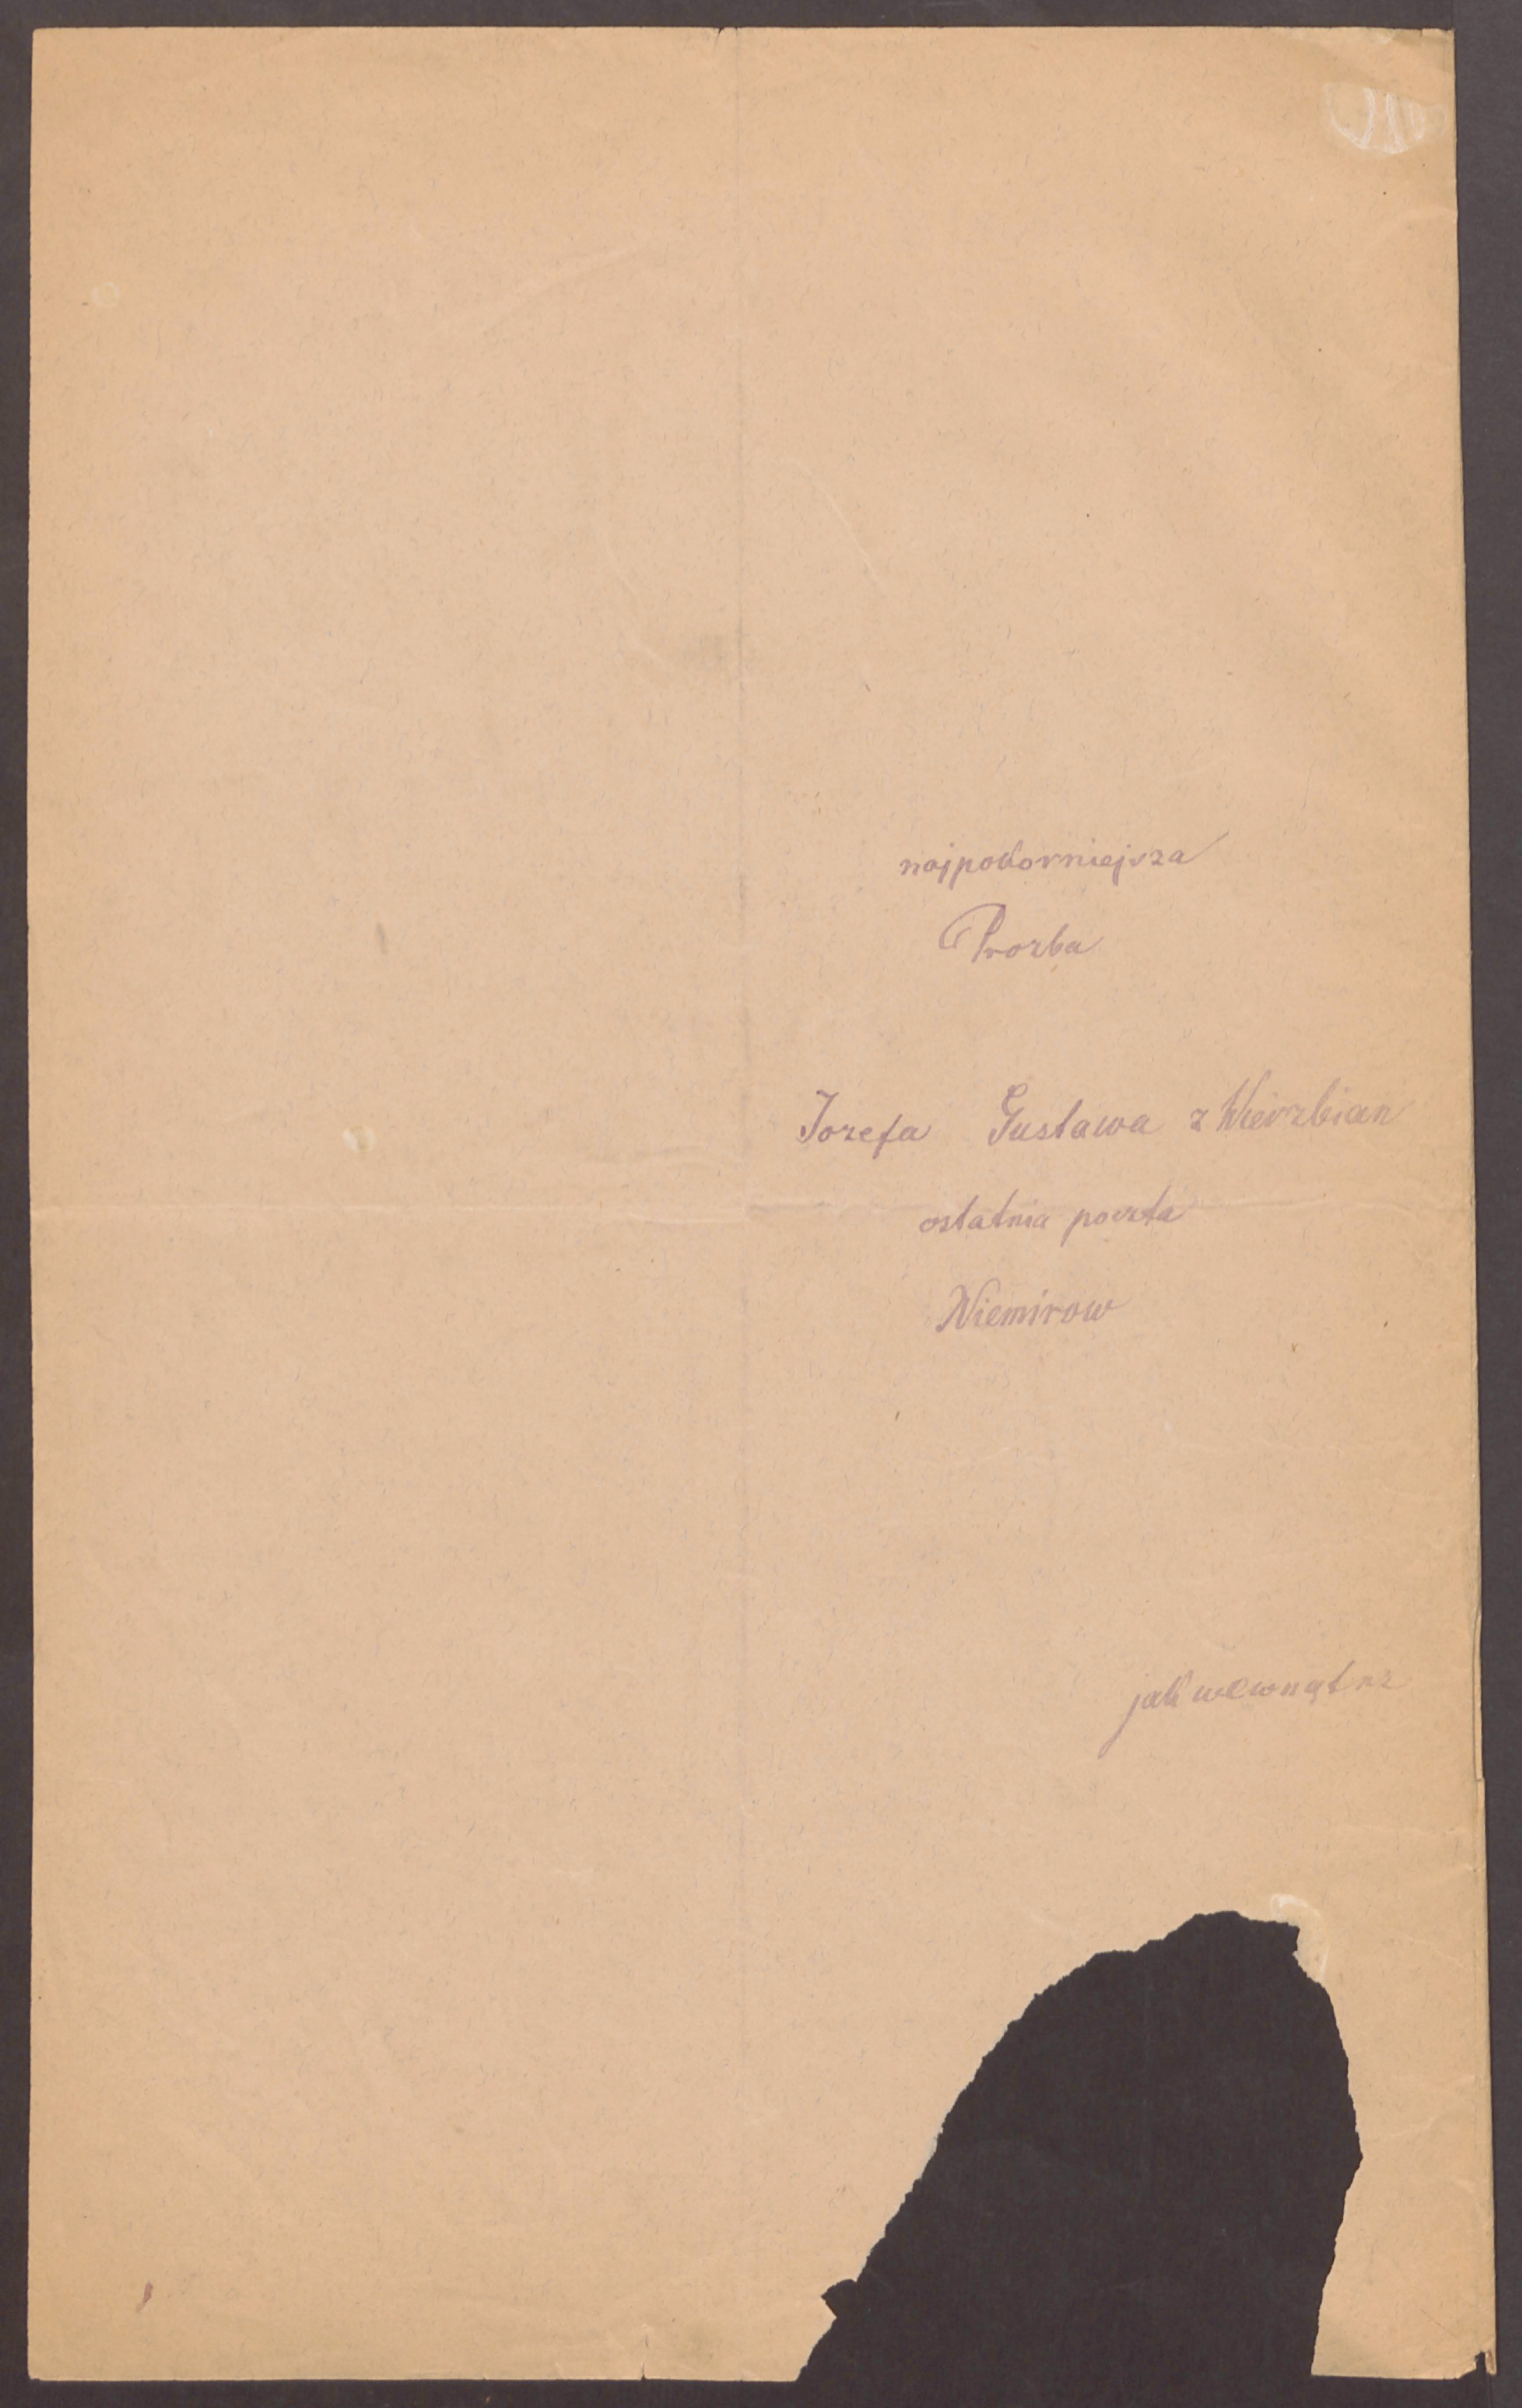 najpokorniejsza
Prozba
Jozefa Gustawa z Wierzbian
ostatnia poczta
Niemirow
jak wewnątrz